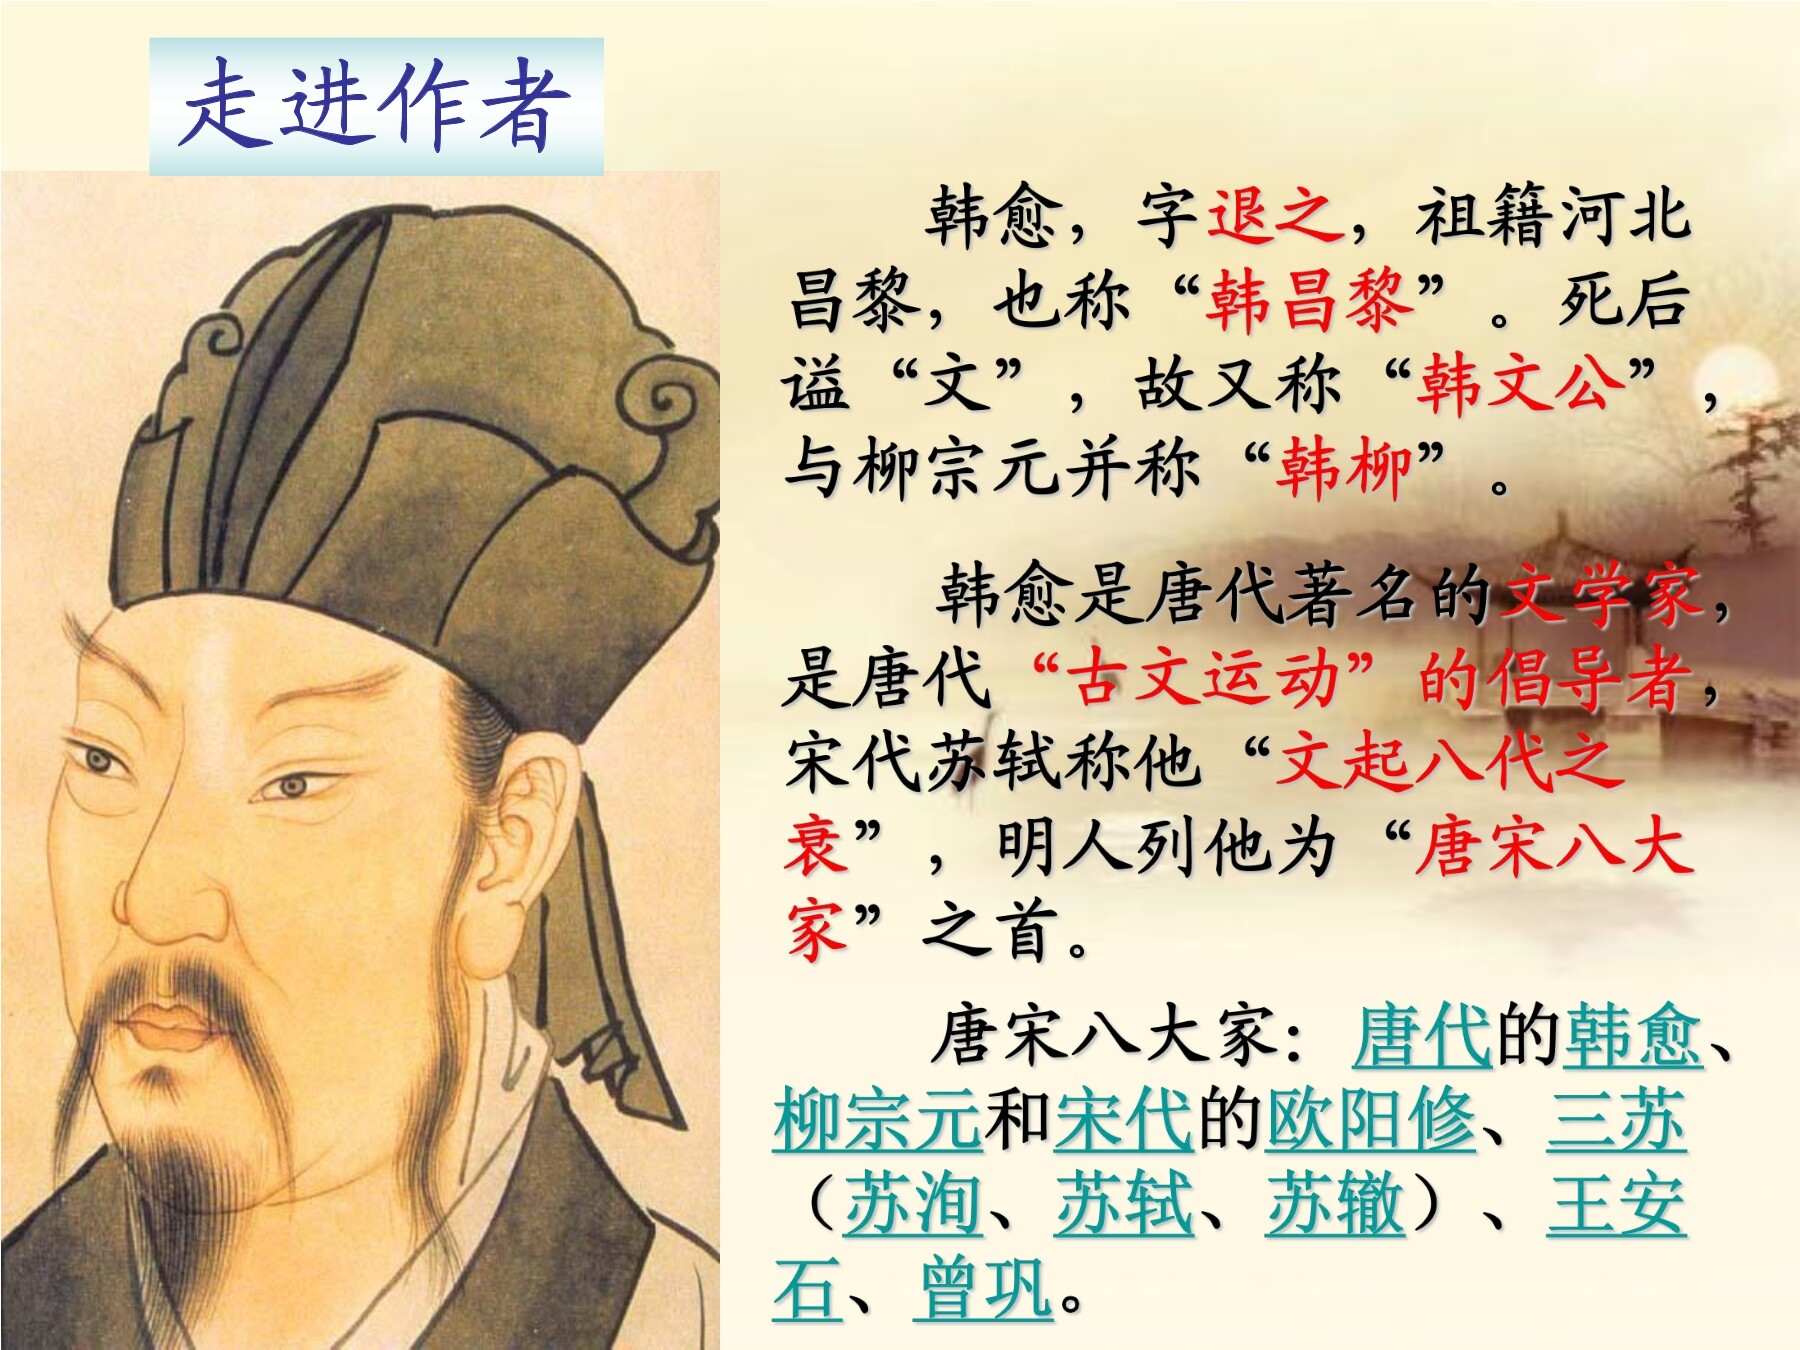 走进作者
韩愈，字退之，祖籍河北
昌黎，也称“韩昌黎”。死后
谥“文”，故又称“韩文公”，
与柳宗元并称“韩柳”。
韩愈是唐代著名的文学家，
是唐代“古文运动”的倡导者，
宋代苏轼称他“文起八代之
衰”，明人列他为“唐宋八大
家”之首。
唐宋八大家：唐代的韩愈、
柳宗元和宋代的欧阳修、三苏
（苏洵、苏轼、苏辙）、王安
石、曾巩。